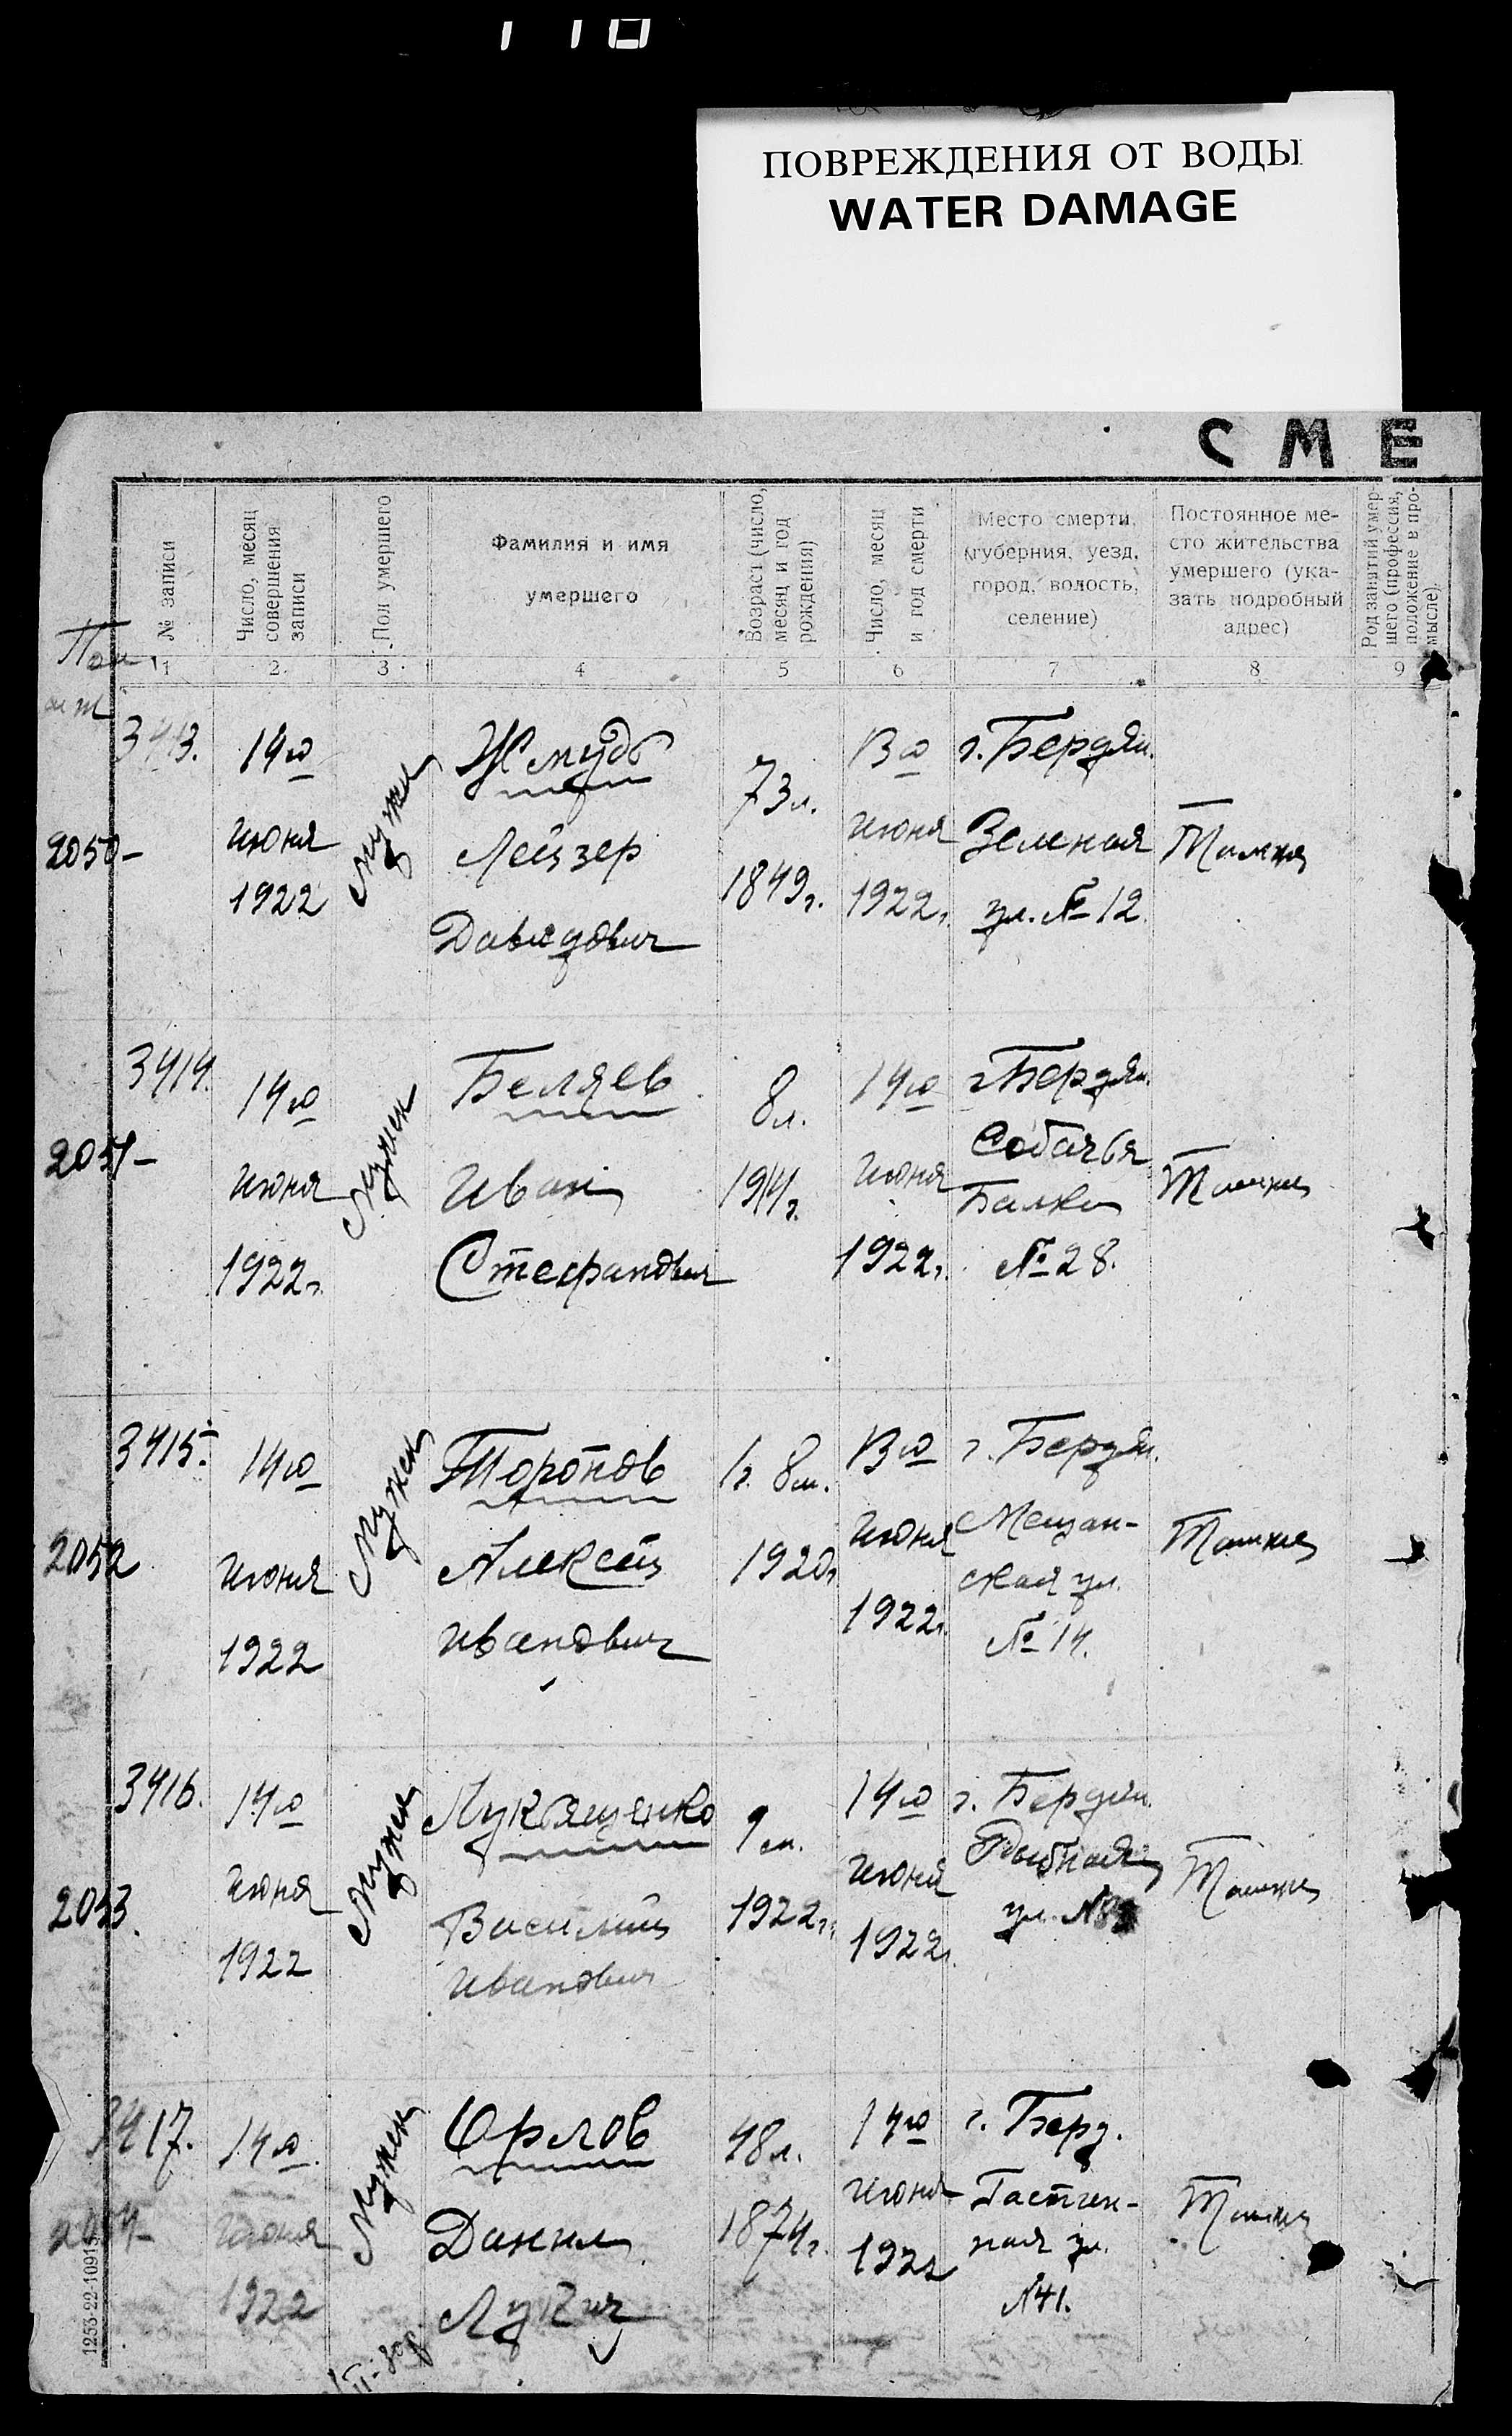 ПОВРЕЖДЕНИЯ ОТ ВОДЫ
WATER DAMAGE
СМЕ
№ записи
Число, месяц
совершения
записи
Пол умершего
Фамилия и имя
умершего
Возраст (число,
месяц и год
рождения)
Число, месяц
и год смерти
Место смерти
(губерния, уезд,
город, волость,
селение)
Постоянное ме-
сто жительства
умершего (ука-
зать подробный
адрес)
Род занятий умер-
шего (профессия,
положение в про-
мысле)
1 2 3 4 5 6 7 8 9
3413.
2050-
14го
июня
1922
Мужск
Жмудь
Лейзер
Давидович
73 л.
1849 г.
13го
июня
1922 г.
г. Бердян.
Зеленая
ул. № 12.
Там же
3414.
2051-
14го
июня
1922 г.
Мужск
Беляев
Иван
Стефанович
8 л.
1914 г.
14го
июня
1922 г.
г. Бердян.
Собачья
Балка
№ 28.
Там же
3415.
2052
14го
июня
1922
Мужск
Торопов
Алексей
Иванович
1 г. 8 м.
1920 г
13го
июня
1922 г.
г. Бердян.
Мещан-
ская ул.
№ 14.
Там же
3416.
2053
14го
июня
1922
Мужск
Лукьященко
Василий
Иванович
9 м.
1922 г.
14го
июня
1922 г.
г. Бердян.
Рыбная
ул. №
Там же
3417.
2054-
14го
июня
1922
Мужск
Орлов
Данил
Лукич
48 л.
1874 г.
14го
июня
1922
г. Берд.
Гостин-
ная ул.
№ 41.
Там же
1253-22-10915